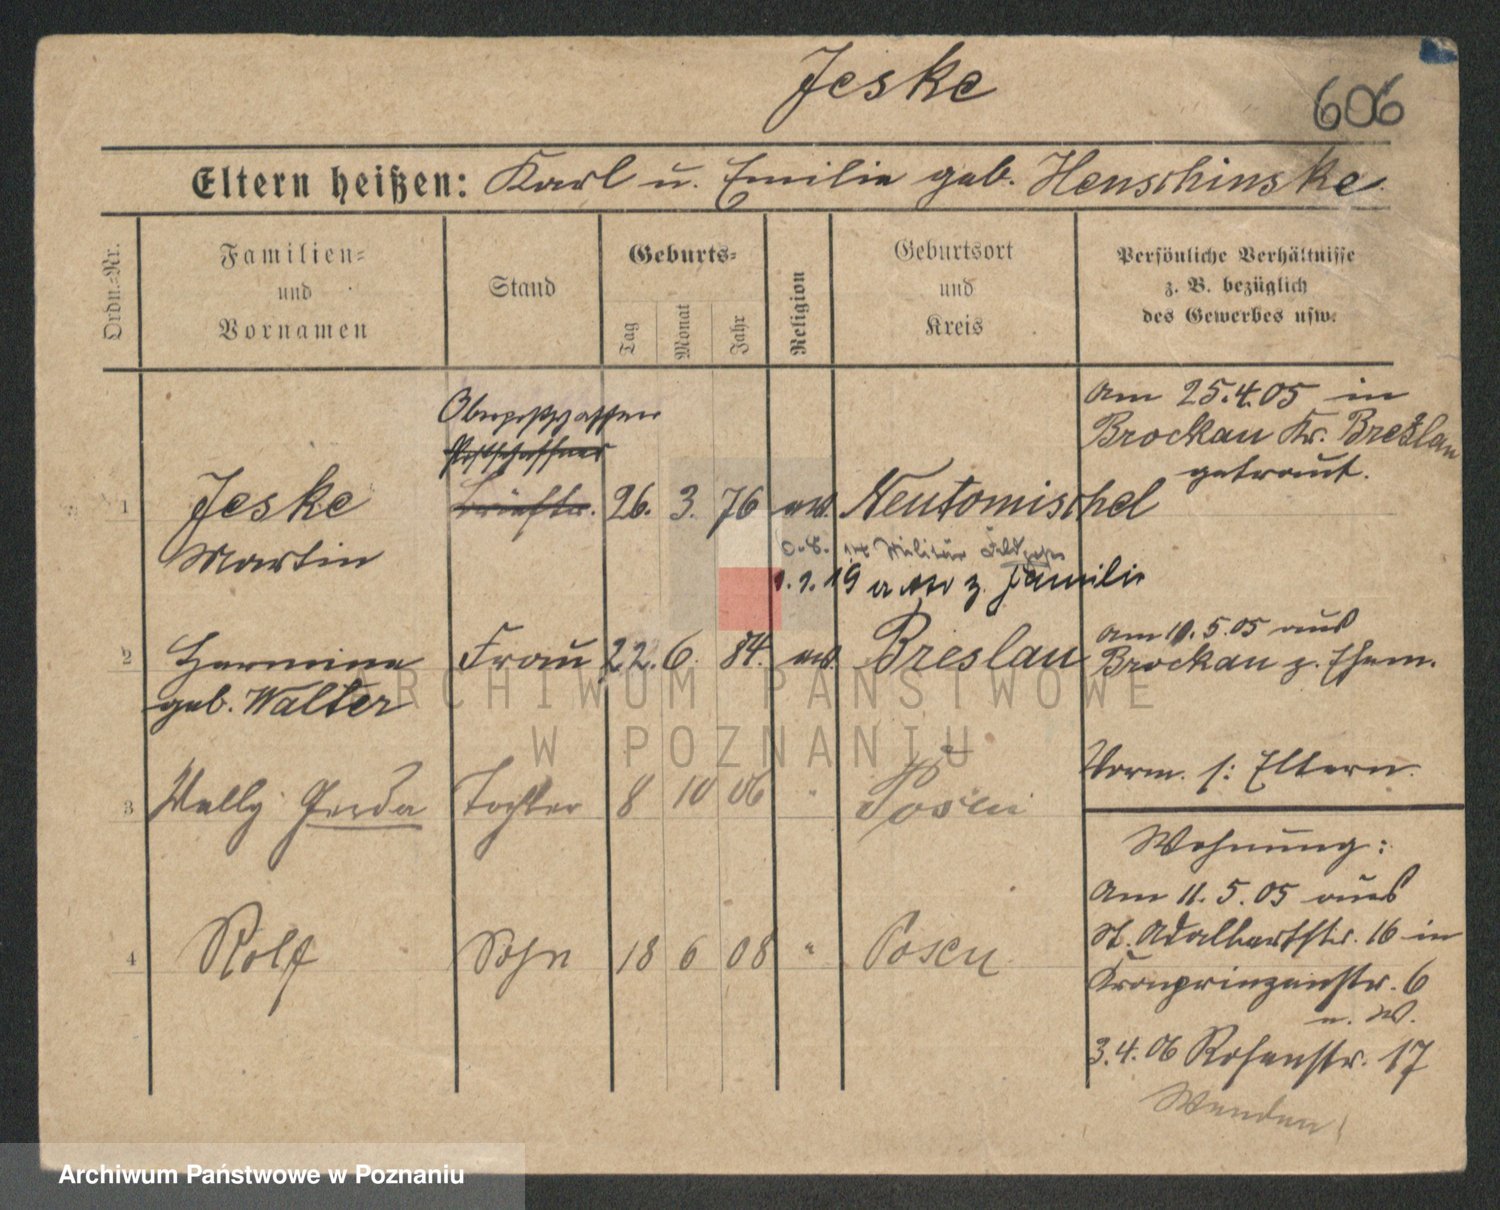 Jeske
606
Eltern heißen: Karl u. Emilie geb. Henschinske
Ordn.=Nr.
Familien=
und
Vornamen
Stand
Geburts=
Tag
Monat
Jahr
Religion
Geburtsort
und
Kreis
Persönliche Verhältnisse
z. B. bezüglich
des Gewerbes usw.
Am 25.4.05 in
Brockau Kr. Breslau
getraut.
Oberpostschaffner
Postschaffner
1 Jeske Brieftr. 26. 3. 76 ev. Neutomischel
Martin
Militär
1.1.19 z. Familie
Am 10.5.05 aus
2 Hermine Frau 22. 6. 84. ev. Breslau Brockau z. Ehem.
geb. Walter
Vorm. s: Eltern.
3 Welly Gerda Tochter 8 10 06 " Posen
Wohnung:
Am 11.5.05 aus
St. Adalbertstr. 16 in
4 Rolf Sohn 18 6 08 " Posen
Kronprinzenstr. 6
u. W.
3.4.06 Rosenstr. 17
Wenden!
ARCHIWUM PAŃSTWOWE
W POZNANIU
Archiwum Państwowe w Poznaniu